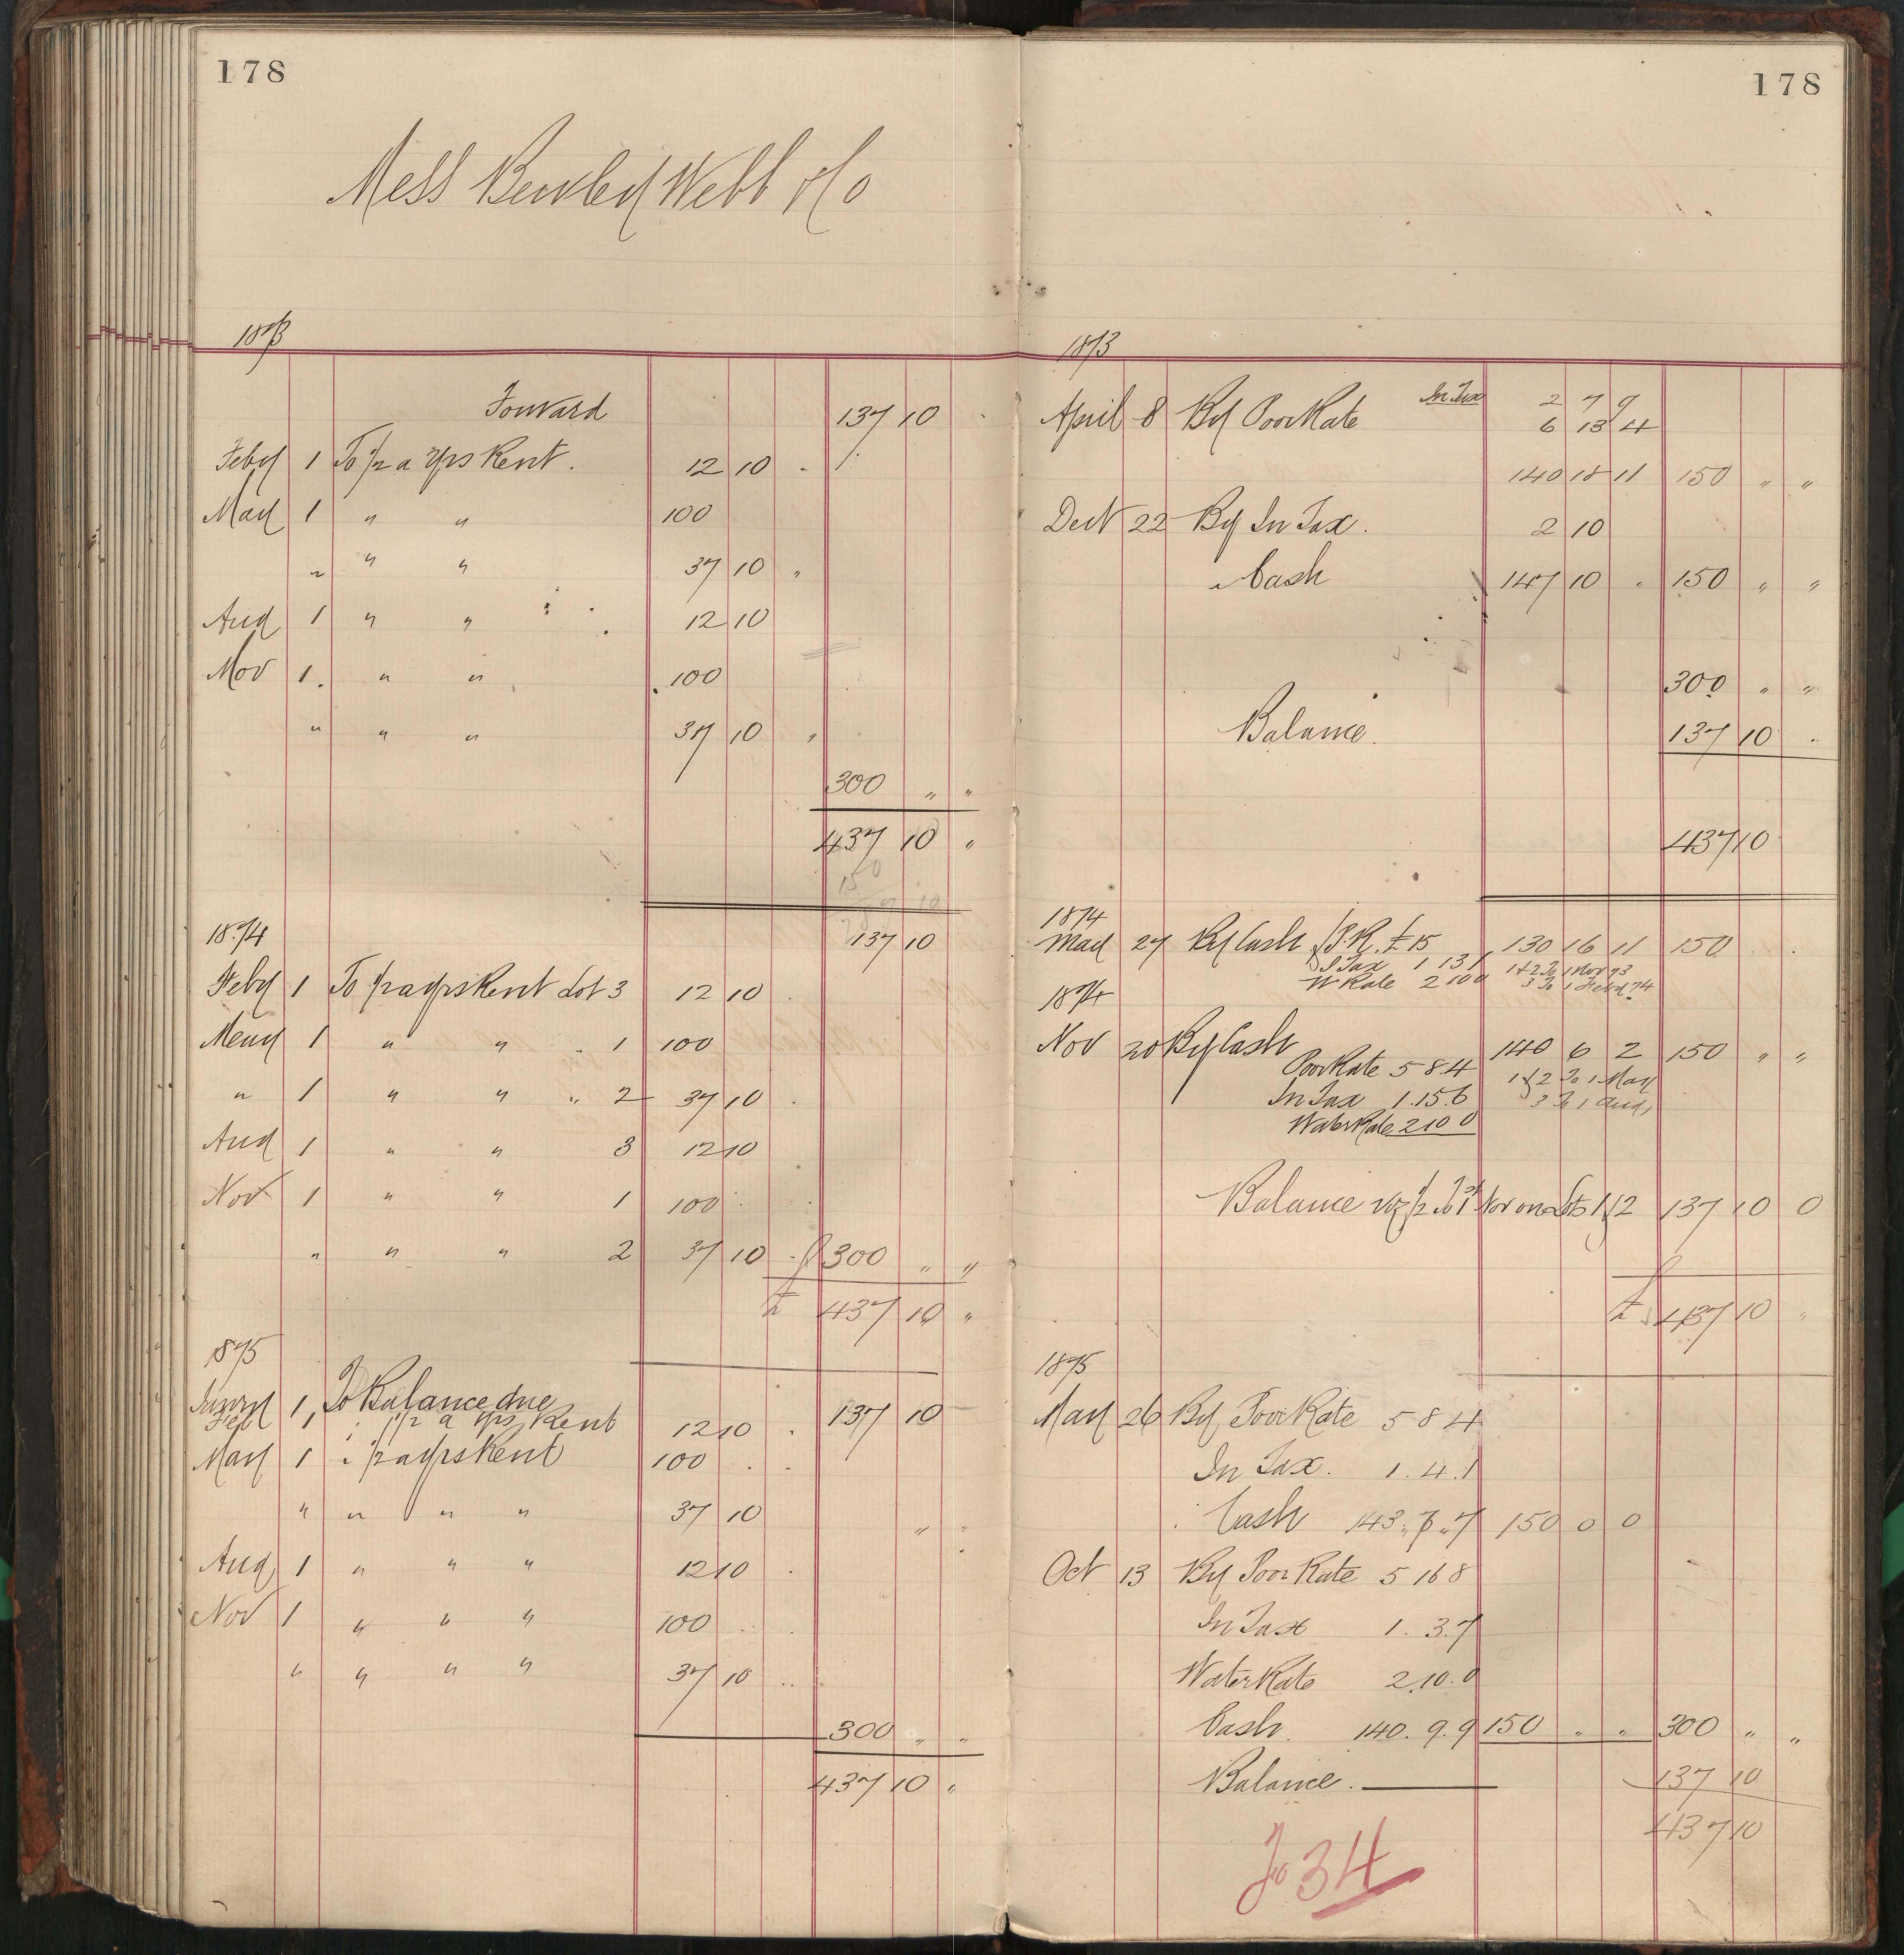 178
Mess Bewley Webb & Co
1873
Forward 137 10
Feby 1 To 1/2 a yrs Rent. 12 10
May 1 " " 100
" " " 37 10 "
Aug 1 " " 12 10
Nov 1. " " 100
" " " 37 10 "
300 " "
437 10 "
1874
137 10
Feby 1 To 1/2 a yrs Rent Lot 3 12 10
May 1 " " " 1 100
" 1 " " " 2 37 10
Aug 1 " " 3 12 10
Nov 1 " " 1 100
" " " 2 37 10 300 " "
£ 437 10 "
1875
Janry 1, To Balance due 137 10
Feb 1 " 1/2 a yrs Rent 12 10
May 1 " 1/2 a yrs Rent 100
" " " " 37 10 " "
Aug 1 " " " 12 10
Nov 1 " " " 100
" " " " 37 10
300 " "
437 10 "
178
1873
In Tax 2 7 9
April 8 By Poor Rate 6 13 4
140 18 11 150 " "
Dec 22 By In Tax. 2 10
Cash 147 10 " 150 " "
300 " "
Balance. 137 10
437 10
1874
May 27 By Cash P.R. £15 130 16 11 150
I Tax 1 13 1 1 & 2 To 1 Nov 73
W Rate 2 10 0 3 To 1 Feby 74
1874
Nov 20 By Cash 140 6 2 150 " "
Poor Rate 5 8 4 1 & 2 To 1 May
In Tax 1.15.6 3 To 1 Aug
Water Rate 2 10 0
Balance viz 1/2 to 1st Nov on Lots 1 & 2 137 10 0
£ 437 10 "
1875
May 26 By Poor Rate 5 8 4
In Tax. 1.4.1
Cash 143.7.7 150 0 0
Oct 13 By Poor Rate 5 16 8
In Tax 1.3.7
Water Rate 2.10.0
Cash. 140.9.9 150 " " 300 " "
Balance. 137 10
437 10
To 34